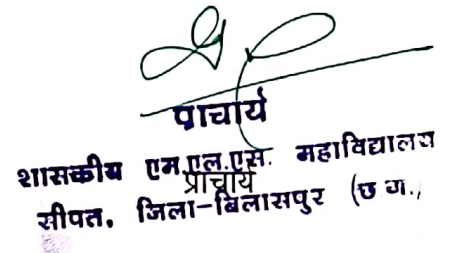 प्राचार्य
शासकीय एम.एल.एस. महाविद्यालय
प्राचार्य
सीपत, जिला-बिलासपुर (छ.ग.)